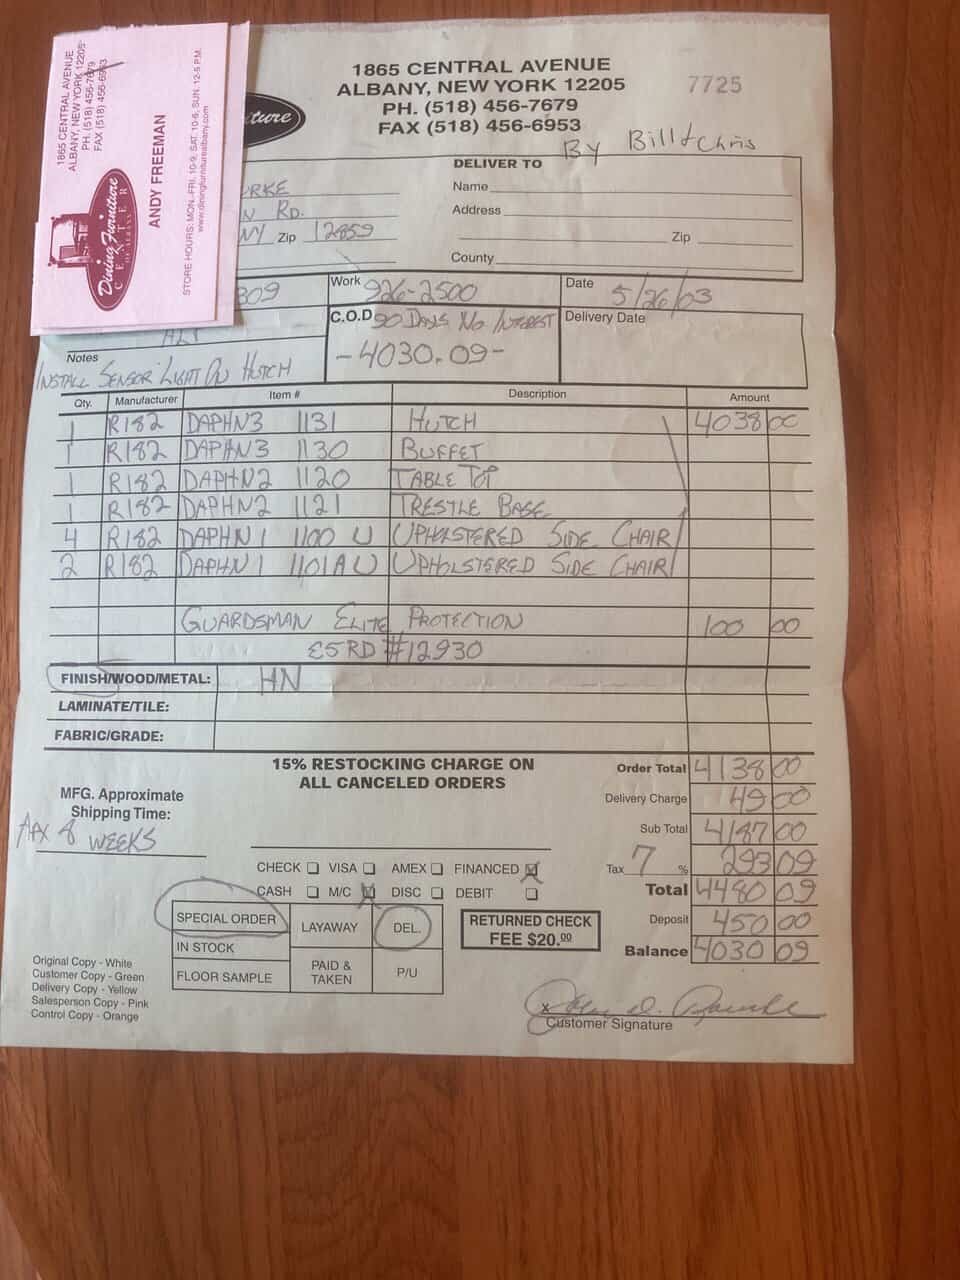 1865 CENTRAL AVENUE
ALBANY, NEW YORK 12205
PH. (518) 456-7679
FAX (518) 456-6953
Dining Furniture
CENTER
OF ALBANY
ANDY FREEMAN
STORE HOURS: MON.-FRI. 10-9, SAT. 10-6, SUN. 12-5 P.M.
www.diningfurniturealbany.com
1865 CENTRAL AVENUE
ALBANY, NEW YORK 12205
PH. (518) 456-7679
FAX (518) 456-6953
7725
By Bill & Chris
DELIVER TO
Name
Address
Zip
County
RKE
N RD.
NY Zip 12859
309
Work 926-2500
Date 5/26/03
C.O.D 90 DAYS NO INTEREST
-4030.09-
Delivery Date
Notes
INSTALL SENSOR LIGHT ON HUTCH
Qty. Manufacturer Item # Description Amount
1 R182 DAPHN3 1131 HUTCH 4038 00
1 R182 DAPHN3 1130 BUFFET
1 R182 DAPHN2 1120 TABLE TOP
1 R182 DAPHN2 1121 TRESTLE BASE
4 R182 DAPHN1 1100 U UPHOLSTERED SIDE CHAIR
2 R182 DAPHN1 1101A U UPHOLSTERED SIDE CHAIR
GUARDSMAN ELITE PROTECTION 100 00
#12930
FINISH/WOOD/METAL: HN
LAMINATE/TILE:
FABRIC/GRADE:
15% RESTOCKING CHARGE ON
ALL CANCELED ORDERS
MFG. Approximate
Shipping Time:
APX 8 WEEKS
Order Total 4138 00
Delivery Charge 49 00
Sub Total 4187 00
Tax 7 % 293 09
Total 4480 09
Deposit 450 00
Balance 4030 09
CHECK VISA AMEX FINANCED
CASH M/C DISC DEBIT
SPECIAL ORDER
IN STOCK
FLOOR SAMPLE
LAYAWAY
PAID &
TAKEN
DEL.
P/U
RETURNED CHECK
FEE $20.00
Original Copy - White
Customer Copy - Green
Delivery Copy - Yellow
Salesperson Copy - Pink
Control Copy - Orange
x
Customer Signature